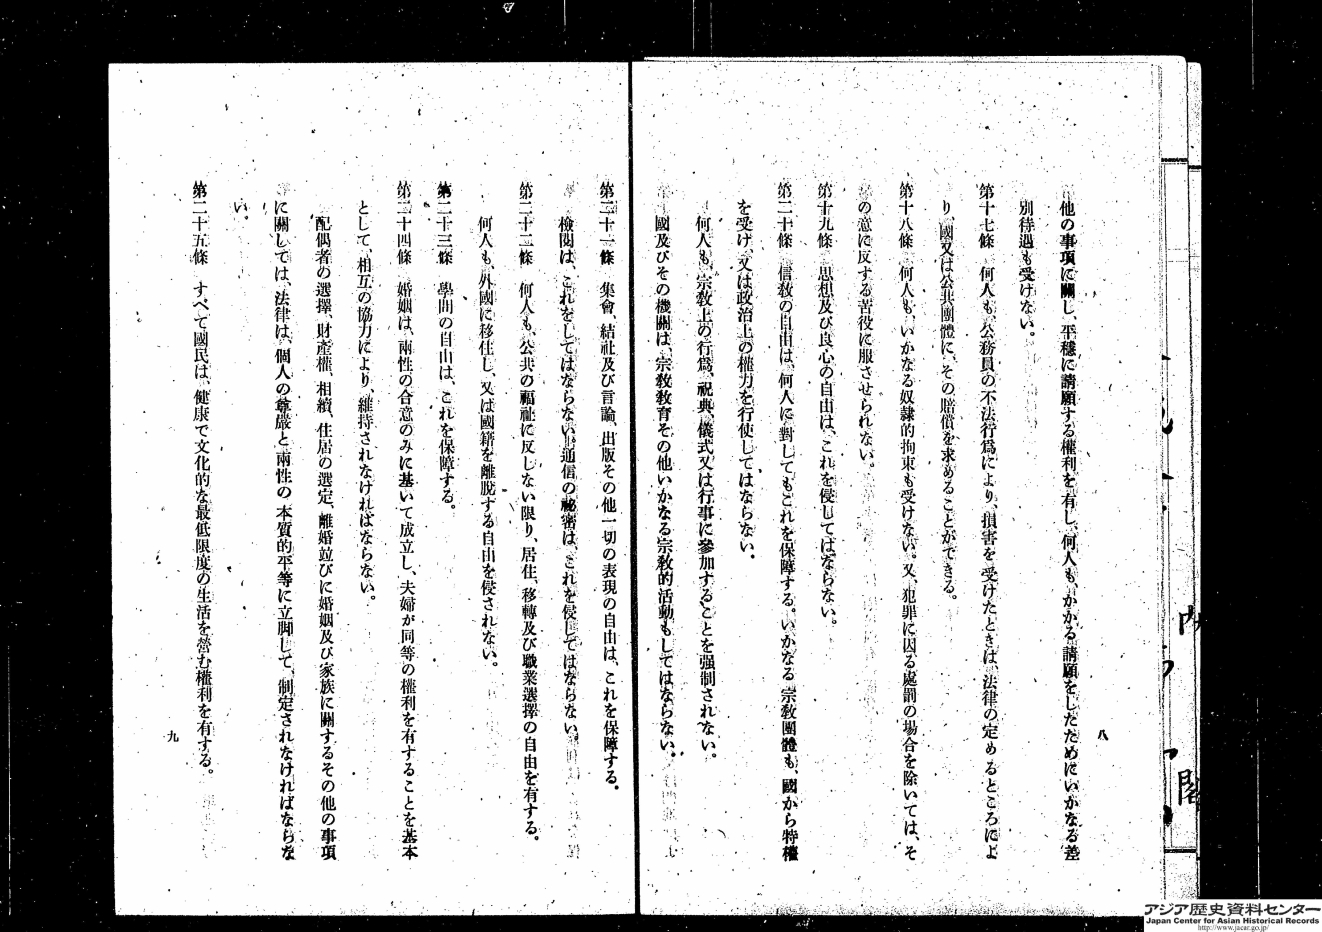 他の事項に關し、平穩に請願する權利を有し、何人も、かかる請願をしたためにいかなる差
別待遇も受けない。
第十七條　何人も、公務員の不法行爲により、損害を受けたときは、法律の定めるところによ
り、國又は公共團體に、その賠償を求めることができる。
第十八條　何人も、いかなる奴隷的拘束も受けない。又、犯罪に因る處罰の場合を除いては、そ
の意に反する苦役に服させられない。
第十九條　思想及び良心の自由は、これを侵してはならない。
第二十條　信敎の自由は、何人に對してもこれを保障する。いかなる宗敎團體も、國から特權
を受け、又は政治上の權力を行使してはならない。
何人も、宗敎上の行爲、祝典、儀式又は行事に參加することを强制されない。
國及びその機關は、宗敎敎育その他いかなる宗敎的活動もしてはならない。
八
第二十一條　集會、結社及び言論、出版その他一切の表現の自由は、これを保障する。
檢閱は、これをしてはならない。通信の祕密は、これを侵してはならない。
第二十二條　何人も、公共の福祉に反しない限り、居住、移轉及び職業選擇の自由を有する。
何人も、外國に移住し、又は國籍を離脫する自由を侵されない。
第二十三條　學問の自由は、これを保障する。
第二十四條　婚姻は、兩性の合意のみに基いて成立し、夫婦が同等の權利を有することを基本
として、相互の協力により、維持されなければならない。
配偶者の選擇、財產權、相續、住居の選定、離婚竝びに婚姻及び家族に關するその他の事項
に關しては、法律は、個人の尊嚴と兩性の本質的平等に立脚して、制定されなければならな
い。
第二十五條　すべて國民は、健康で文化的な最低限度の生活を營む權利を有する。
九
閣
アジア歴史資料センター
Japan Center for Asian Historical Records
http://www.jacar.go.jp/